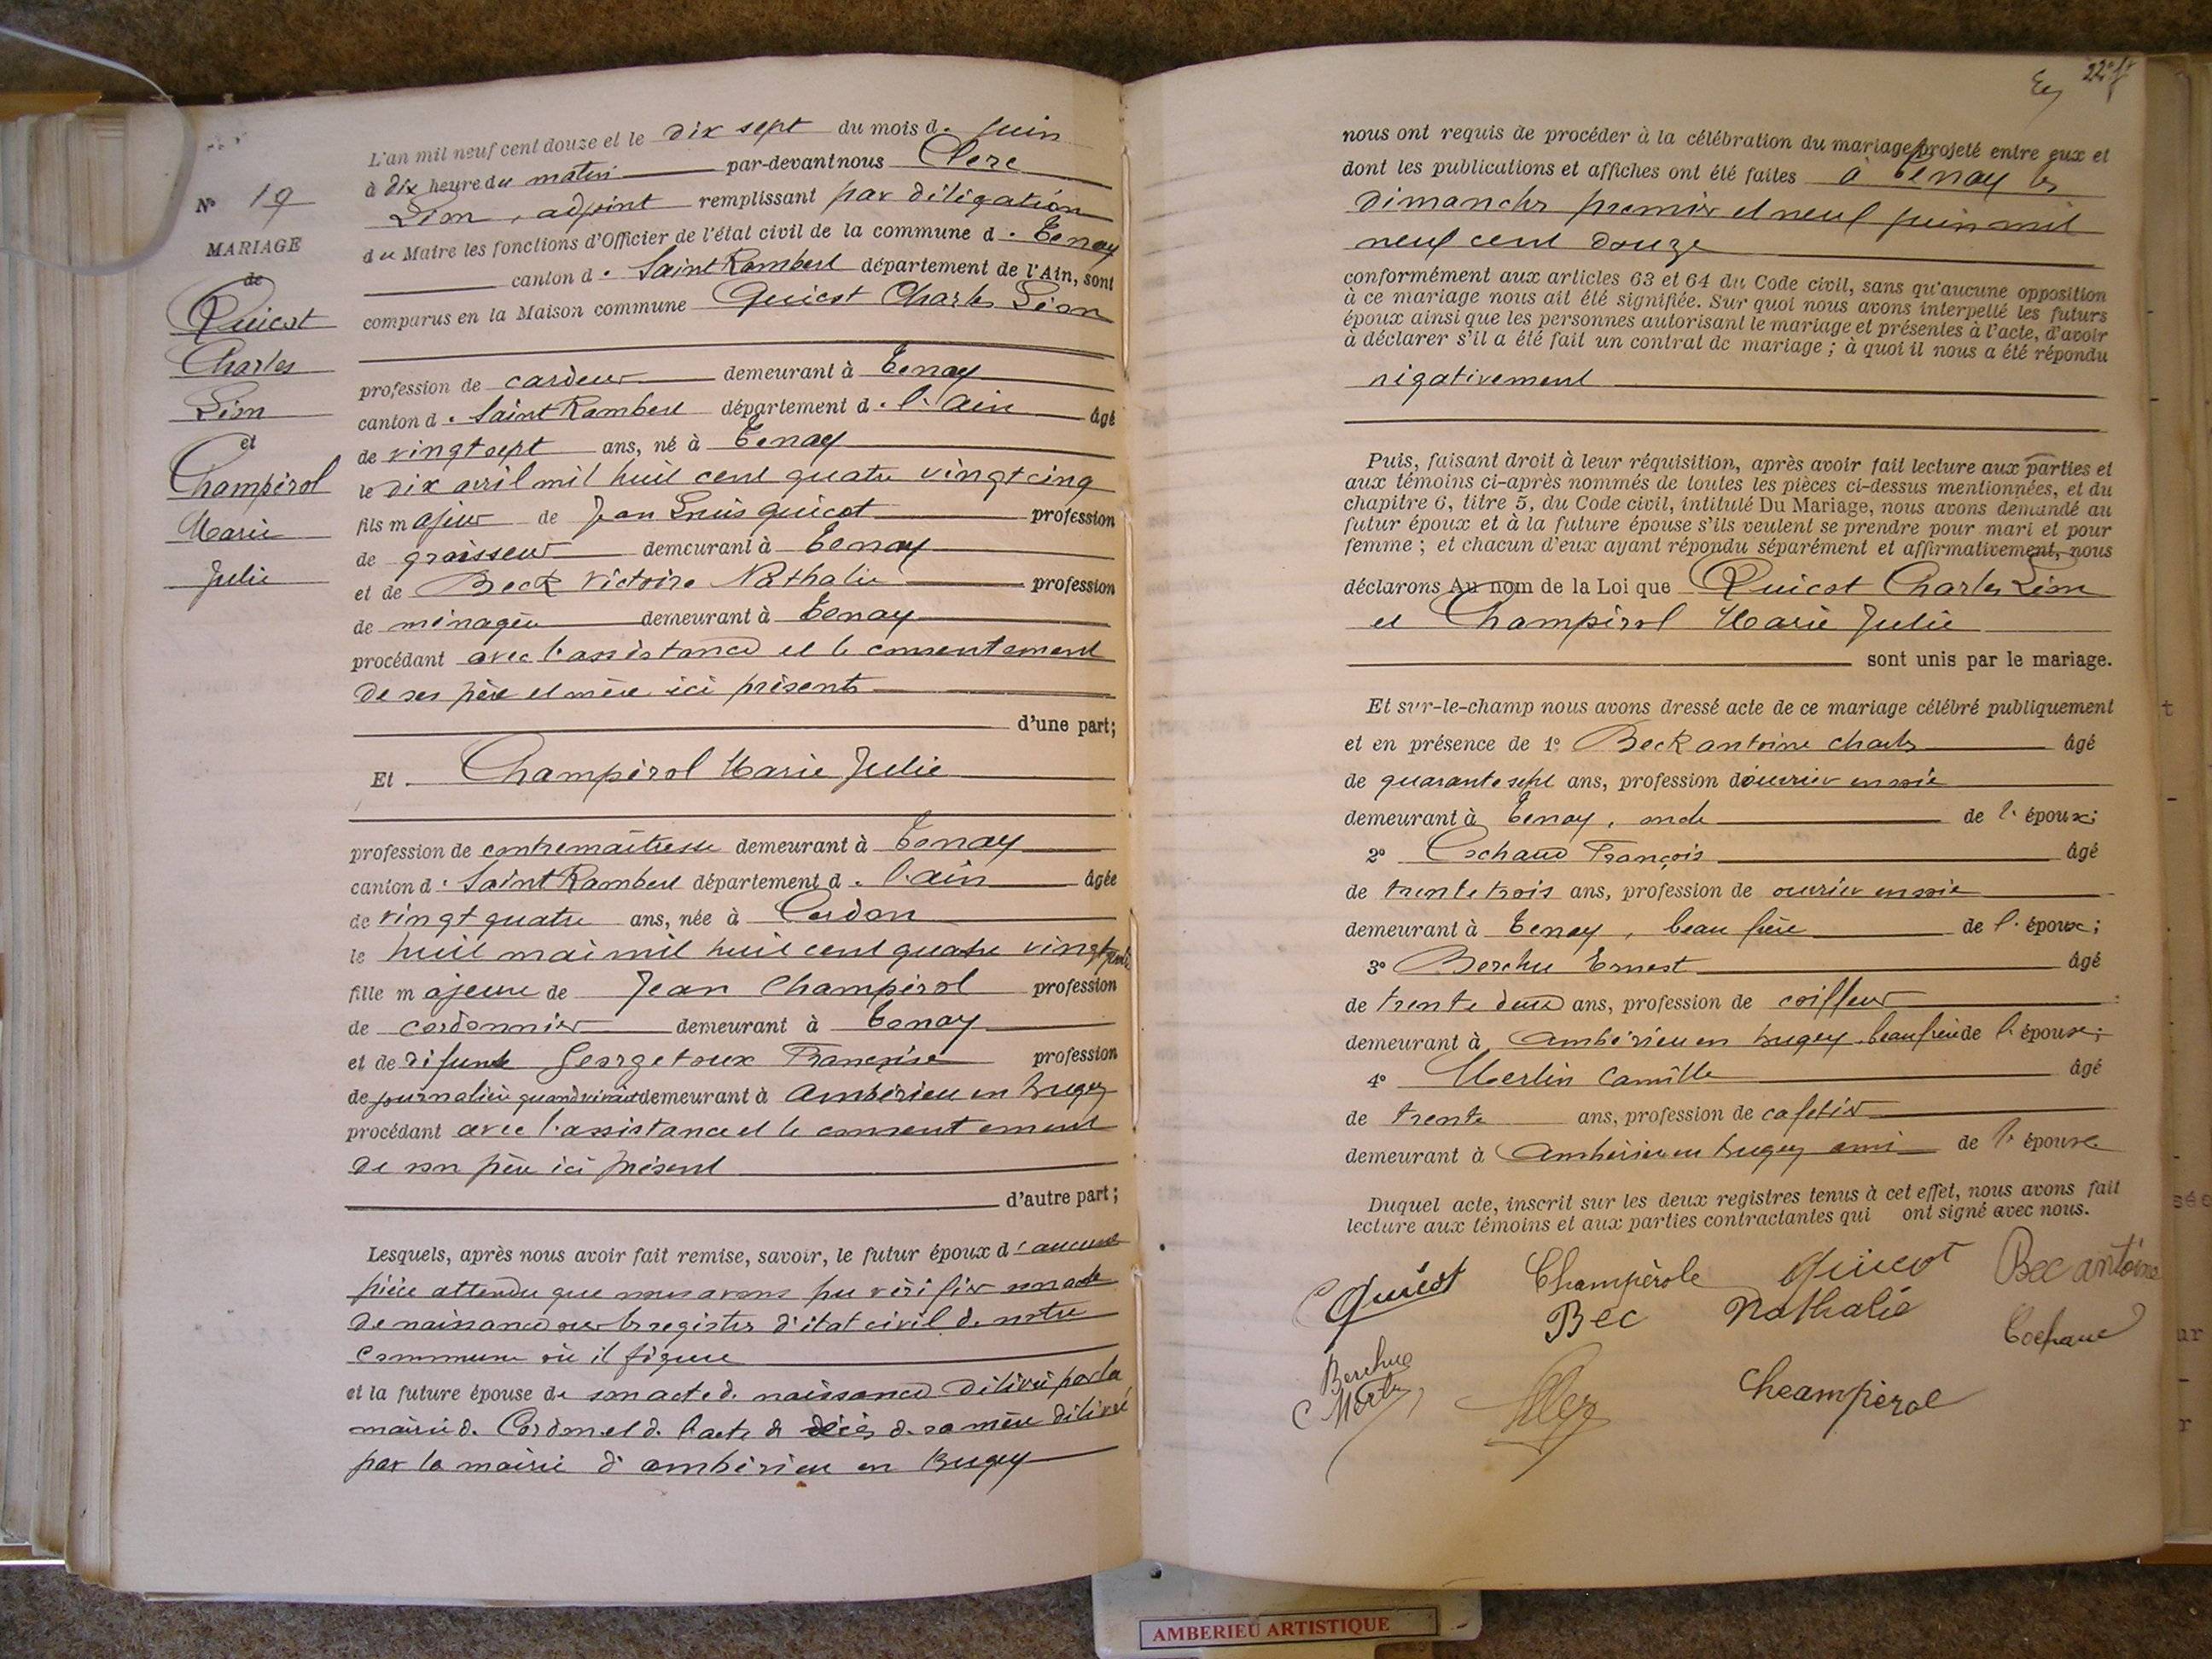 L'an mil neuf cent douze et le dix sept du mois d. juin
à dix heure du matin par-devant nous Clerc
Léon, adjoint remplissant par délégation
du Maire les fonctions d'Officier de l'état civil de la commune d. Tenay
canton d. Saint Rambert département de l'Ain, sont
comparus en la Maison commune Quicot Charles Léon
profession de cardeur demeurant à Tenay
canton d. Saint Rambert département d. l'Ain âgé
de vingt sept ans, né à Tenay
le dix avril mil huit cent quatre vingt cinq
fils majeur de Jean Louis Quicot profession
de graisseur demeurant à Tenay
et de Beck Victoire Nathalie profession
de ménagère demeurant à Tenay
procédant avec l'assistance et le consentement
de ses père et mère ici présents
d'une part;
Et Champérol Marie Julie
profession de contremaîtresse demeurant à Tenay
canton d. Saint Rambert département d. l'Ain âgée
de vingt quatre ans, née à Cerdon
le huit mai mil huit cent quatre vingt
fille majeure de Jean Champérol profession
de cordonnier demeurant à Tenay
et de défunte Georgetoux Françoise profession
de journalière quand vivait demeurant à Ambérieu en Bugey
procédant avec l'assistance et le consentement
de son père ici présent
d'autre part;
Lesquels, après nous avoir fait remise, savoir, le futur époux d'aucune
pièce attendu que nous avons pu vérifier son acte
de naissance sur les registres d'état civil de notre
commune où il figure
et la future épouse de son acte d. naissance délivré par la
mairie d. Cerdon et d. l'acte de décès d. sa mère délivré
par la mairie d'Ambérieu en Bugey
N° 19
MARIAGE
de
Quicot
Charles
Léon
et
Champérol
Marie
Julie
22
nous ont requis de procéder à la célébration du mariage projeté entre eux et
dont les publications et affiches ont été faites à Tenay les
dimanches premier et neuf juin mil
neuf cent douze
conformément aux articles 63 et 64 du Code civil, sans qu'aucune opposition
à ce mariage nous ait été signifiée. Sur quoi nous avons interpellé les futurs
époux ainsi que les personnes autorisant le mariage et présentes à l'acte, d'avoir
à déclarer s'il a été fait un contrat de mariage; à quoi il nous a été répondu
négativement
Puis, faisant droit à leur réquisition, après avoir fait lecture aux parties et
aux témoins ci-après nommés de toutes les pièces ci-dessus mentionnées, et du
chapitre 6, titre 5, du Code civil, intitulé Du Mariage, nous avons demandé au
futur époux et à la future épouse s'ils veulent se prendre pour mari et pour
femme; et chacun d'eux ayant répondu séparément et affirmativement, nous
déclarons Au nom de la Loi que Quicot Charles Léon
et Champérol Marie Julie
sont unis par le mariage.
Et sur-le-champ nous avons dressé acte de ce mariage célébré publiquement
et en présence de 1° Beck Antoine Charles âgé
de quarante sept ans, profession d'ouvrier en soie
demeurant à Tenay, oncle de l'époux;
2° Cochaud François âgé
de trente trois ans, profession de ouvrier en soie
demeurant à Tenay, beau frère de l'époux;
3° Berchu Ernest âgé
de trente deux ans, profession de coiffeur
demeurant à Ambérieu en Bugey beau frère de l'épouse;
4° Merlin Camille âgé
de trente ans, profession de cafetier
demeurant à Ambérieu en Bugey ami de l'épouse
Duquel acte, inscrit sur les deux registres tenus à cet effet, nous avons fait
lecture aux témoins et aux parties contractantes qui ont signé avec nous.
Quicot Champérole Quicot Bec antoine
Bec Nathalie
Cochaud
Berchu
Champérol
AMBERIEU ARTISTIQUE